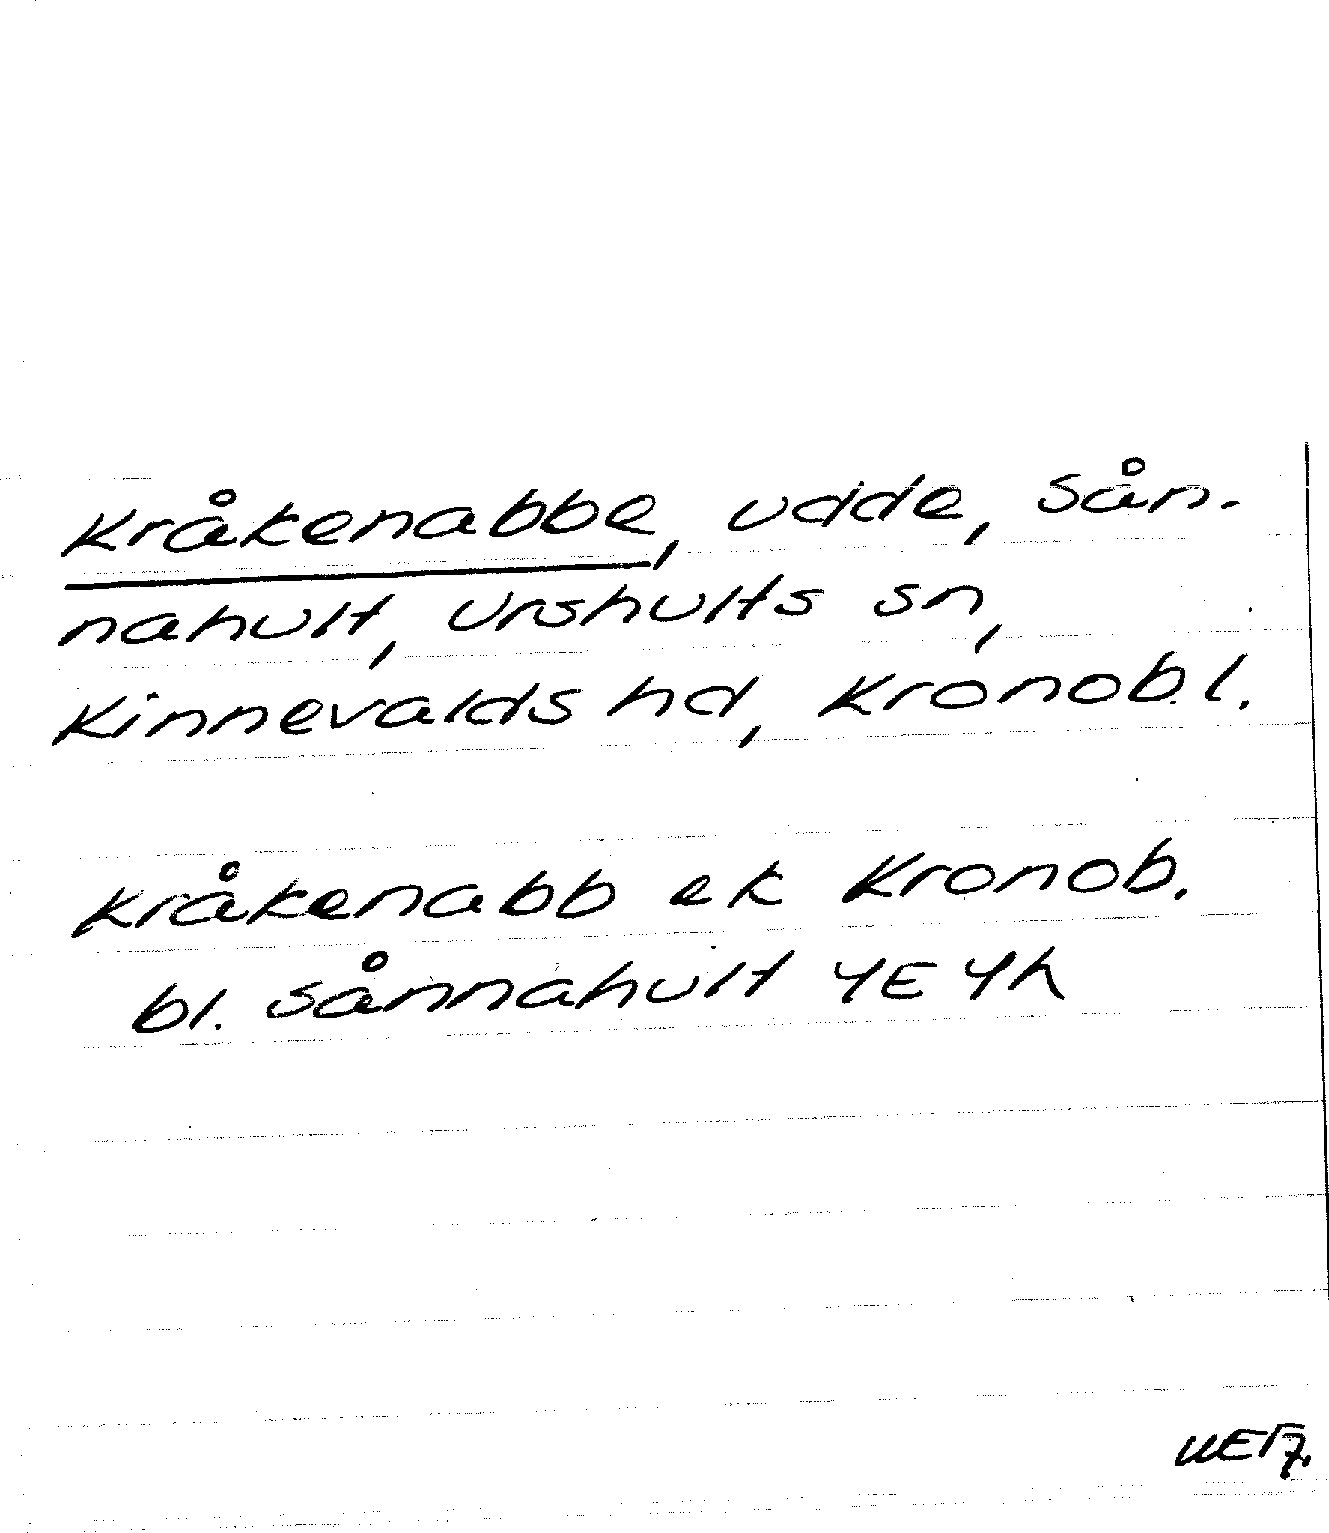 Kråkenabbe, udde, Sån-
nahult, Urshults sn,
Kinnevalds hd, Kronob. l.
Kråkenabb ek Kronob.
bl. Sånnahult 4E4h